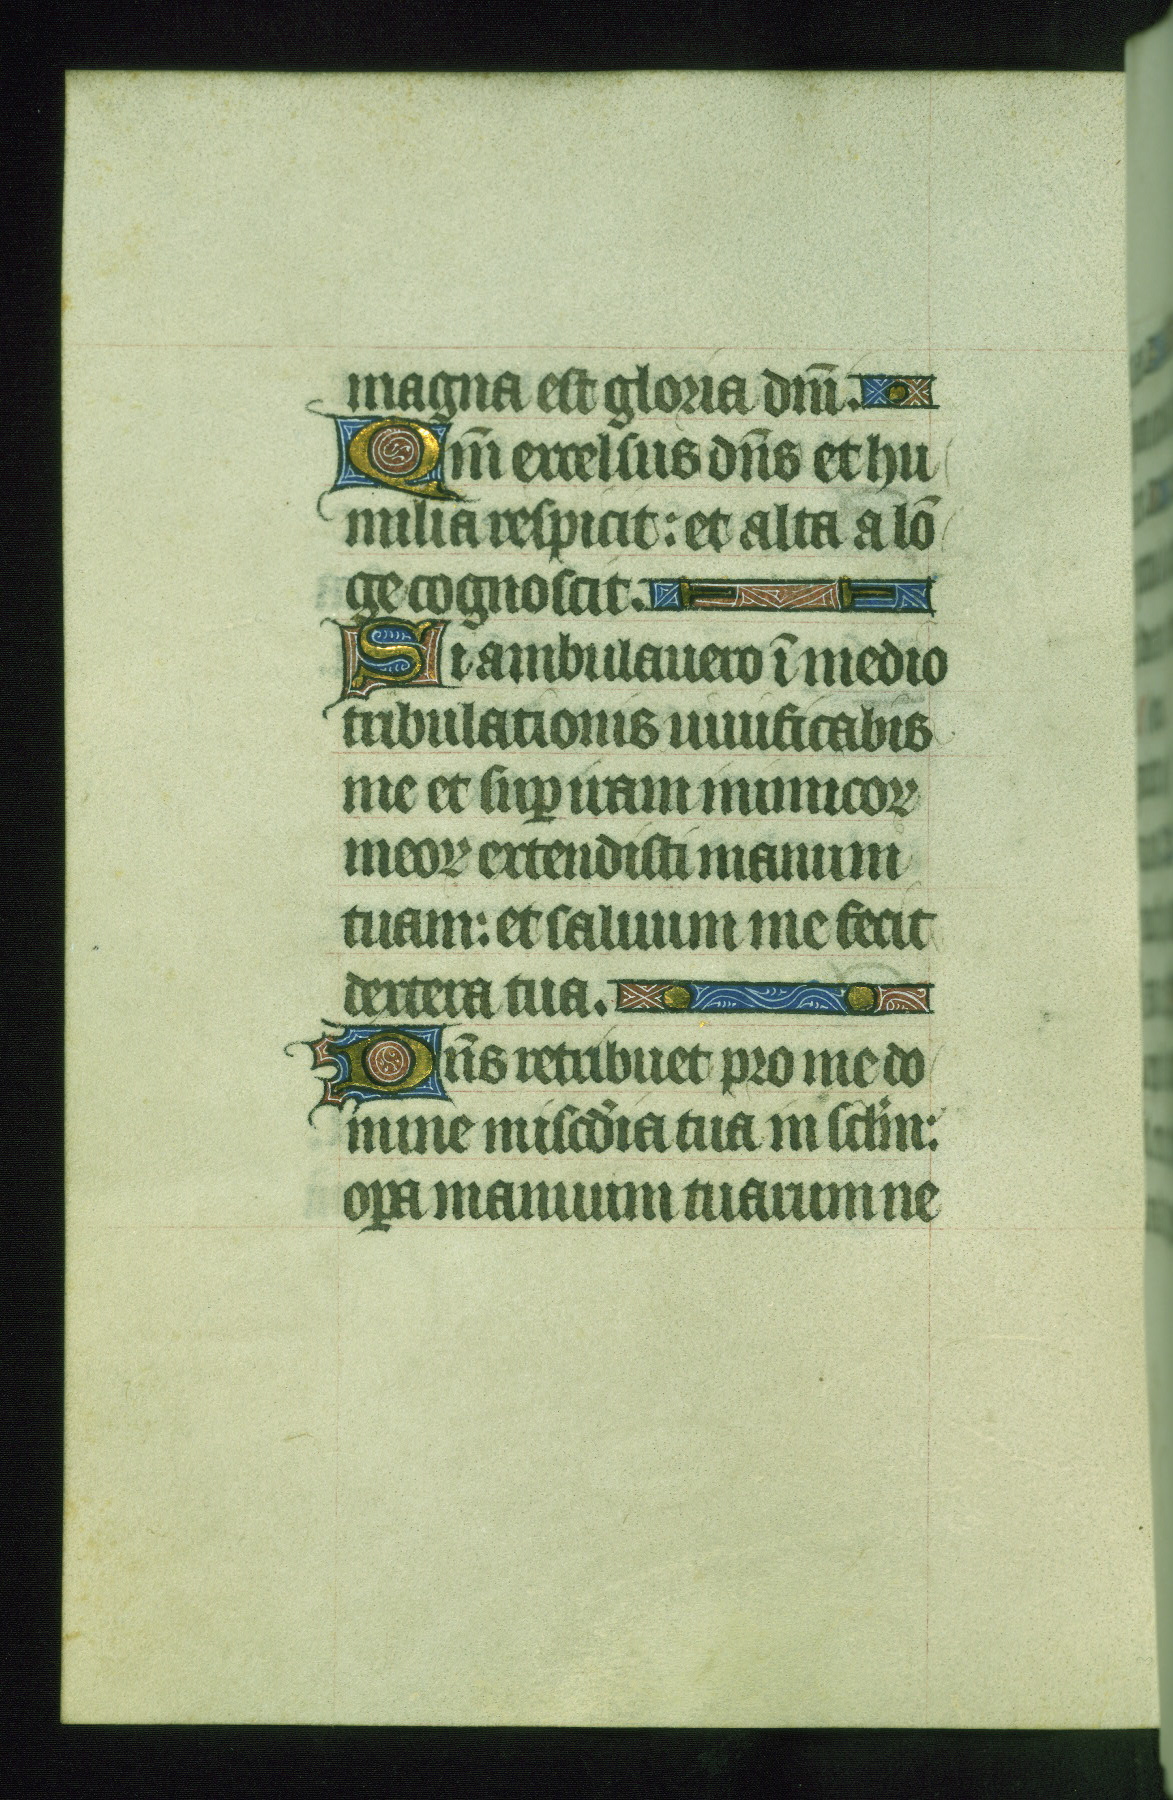 magna est gloria dm̄i.
Qm̄ excelsus dn̄s et hu
milia respicit: et alta a lō
ge cognoscit.
Si ambulauero ī medio
tribulationis uiuificabis
me et suꝑ iram inimicoꝝ
meoꝝ extendisti manum
tuam: et saluum me fecit
dextera tua.
Dn̄s retribuet pro me do
mine misc̄dia tua in sclm:
oꝑa manuum tuarum ne